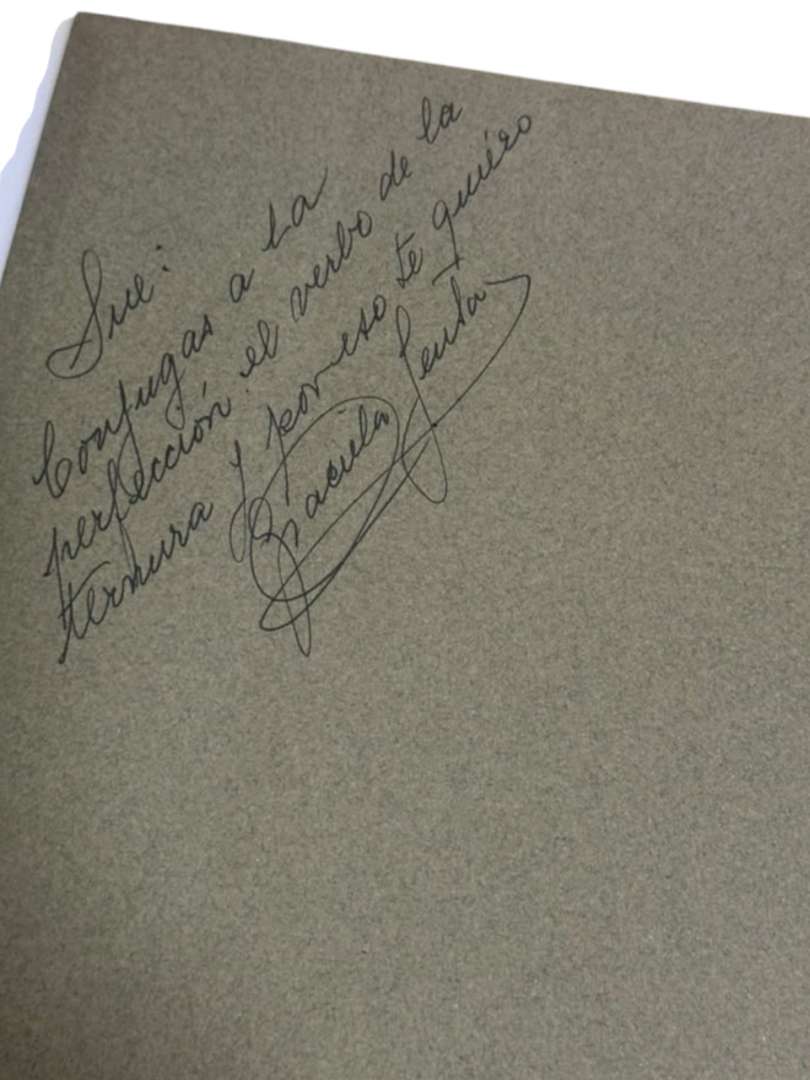 Sue:
Conjugas a la
perfección el verbo de la
ternura y por eso te quiero